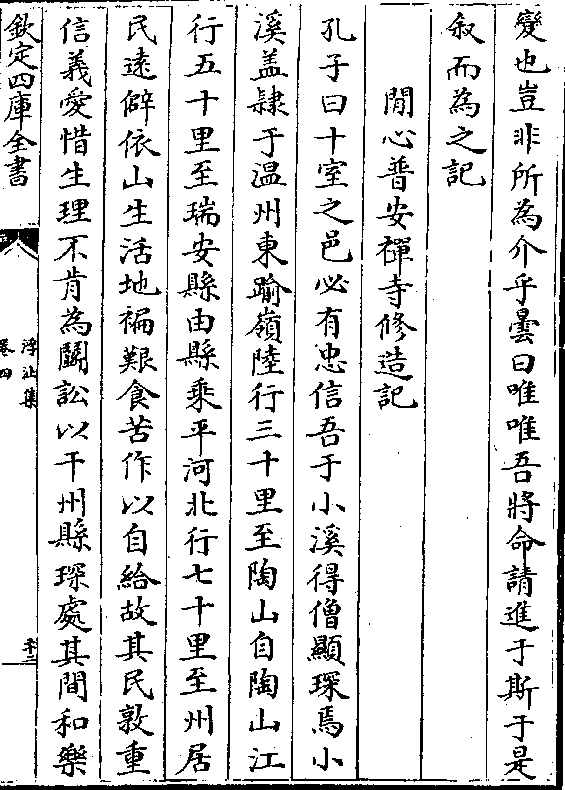 變也豈非所為介乎曇曰唯唯吾將命請進于斯于是
叙而為之記
閒心普安禪寺修造記
孔子曰十室之邑必有忠信吾于小溪得僧顯琛焉小
溪盖隷于温州東踰嶺陸行三十里至陶山自陶山江
行五十里至瑞安縣由縣乘平河北行七十里至州居
民逺僻依山生活地褊艱食苦作以自給故其民敦重
信義愛惜生理不肯為鬭訟以干州縣琛處其間和樂
欽定四庫全書
浮沚集
卷四